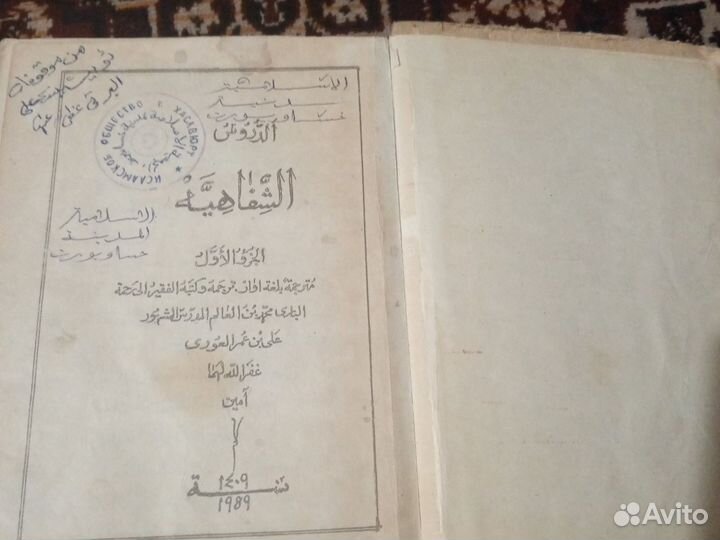 من موقوفات
الإسلامية
ИСЛАМСКОЕ ОБЩЕСТВО г. ХАСАВЮРТ
الدَّرُوسُ
الشِّفَاهِيَّة
الإسلامية
المدينة
خساويورت
الجُزْءُ الأَوَّلُ
مُترجمة بلغة اوار ترجمه وكتبه الفقير الى رحمة
البارى محمد بن العالم المدرس الشهور
على بن عمر العورى
غفر الله لهما
آمين
سنة
١٤٠٩
1989
Avito